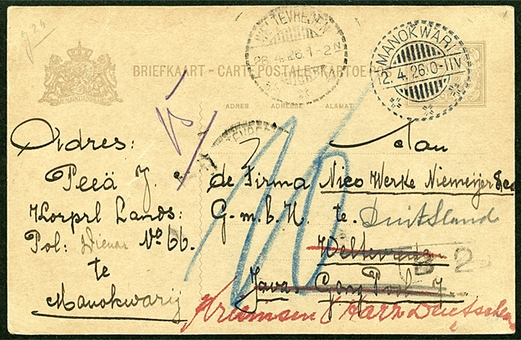 WELTEVREDEN
26.4.26.1-2N
MANOKWARI
12.4.26.0-11V
BRIEFKAART - CARTE POSTALE - KAARTOE
ADRES ADRESSE ALAMAT
Adres:
Peeä J.
Korprl Lands:
Pol: Dienar No 66.
te
Manokwarij
Aan
de Firma Nico Werke Niemeijer & Co
G.m.b.H. te Duitsland
Weltevreden
Java
B 2
10
Kreiensen / Harz Deutschland